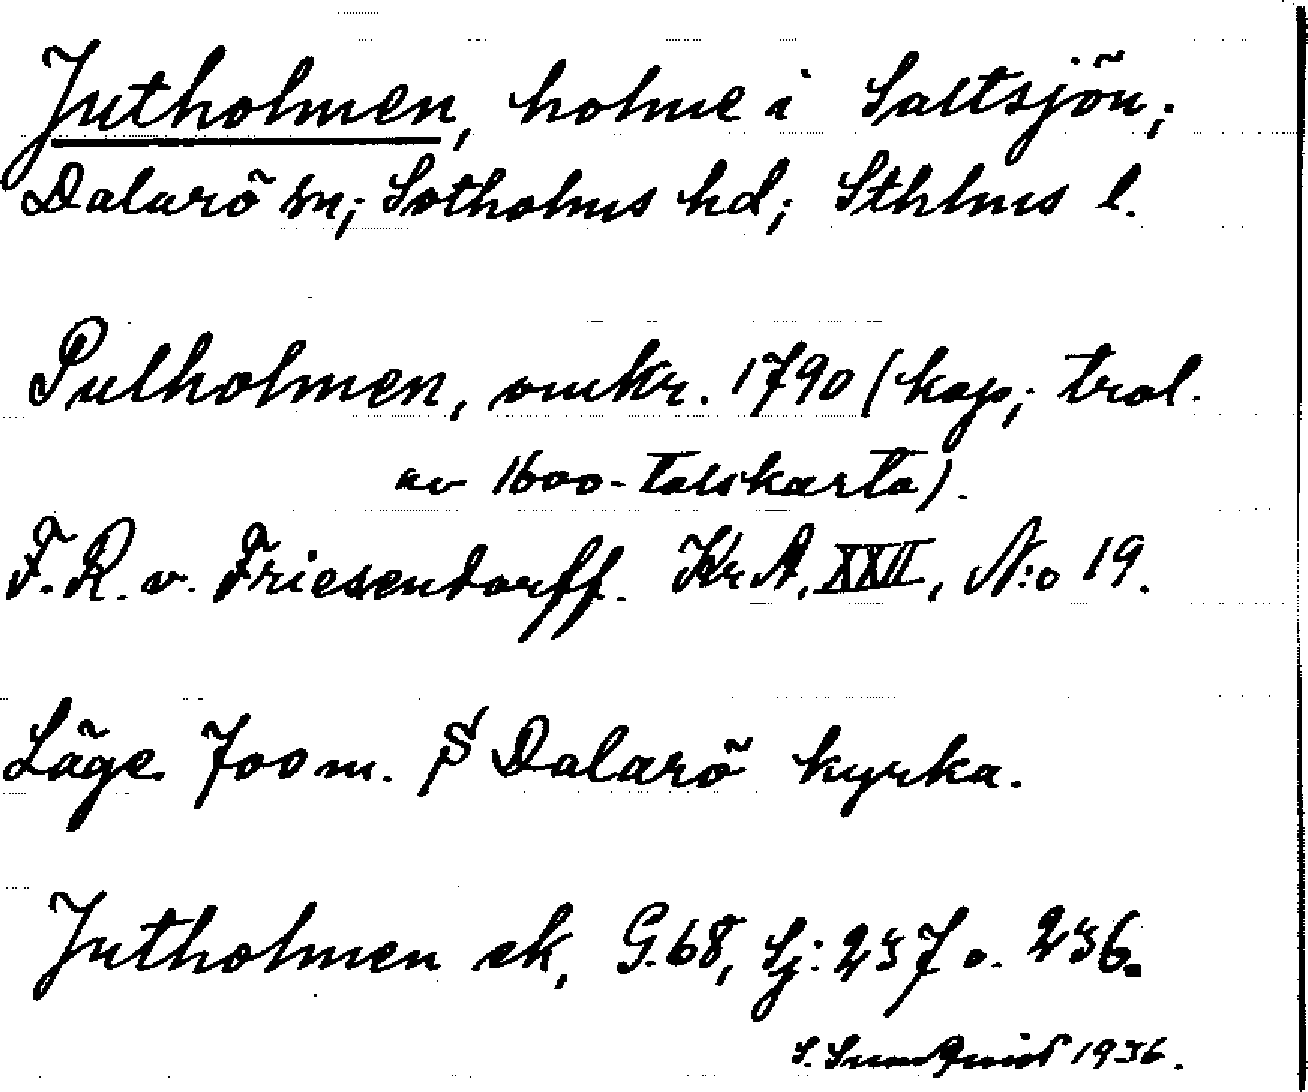 Jutholmen, holme i Saltsjön;
Dalarö sn; Sotholms hd; Sthlms l.
Pulholmen, omkr. 1790 (kop; trol.
av 1600-talskarta).
F. R. v. Friesendorff. Kr A, XXII, N:o 19.
Läge 700 m. S Dalarö kyrka.
Jutholmen ek, G. 68, Sj: 237 o. 236.
S. Sundqvist 1936.